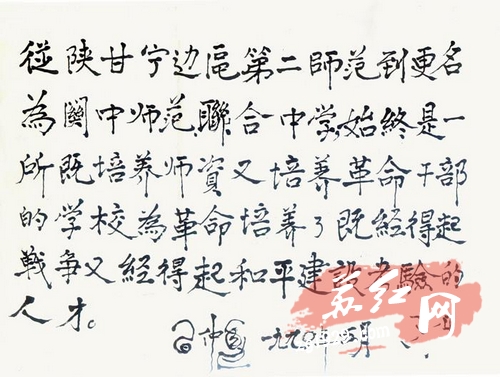 從陕甘宁边區第二師范到更名
為関中师范聯合中学,始終是一
所既培养师資又培养革命干部
的学校為革命培养了既經得起
戰争又經得起和平建設考驗的
人才。
苏红网